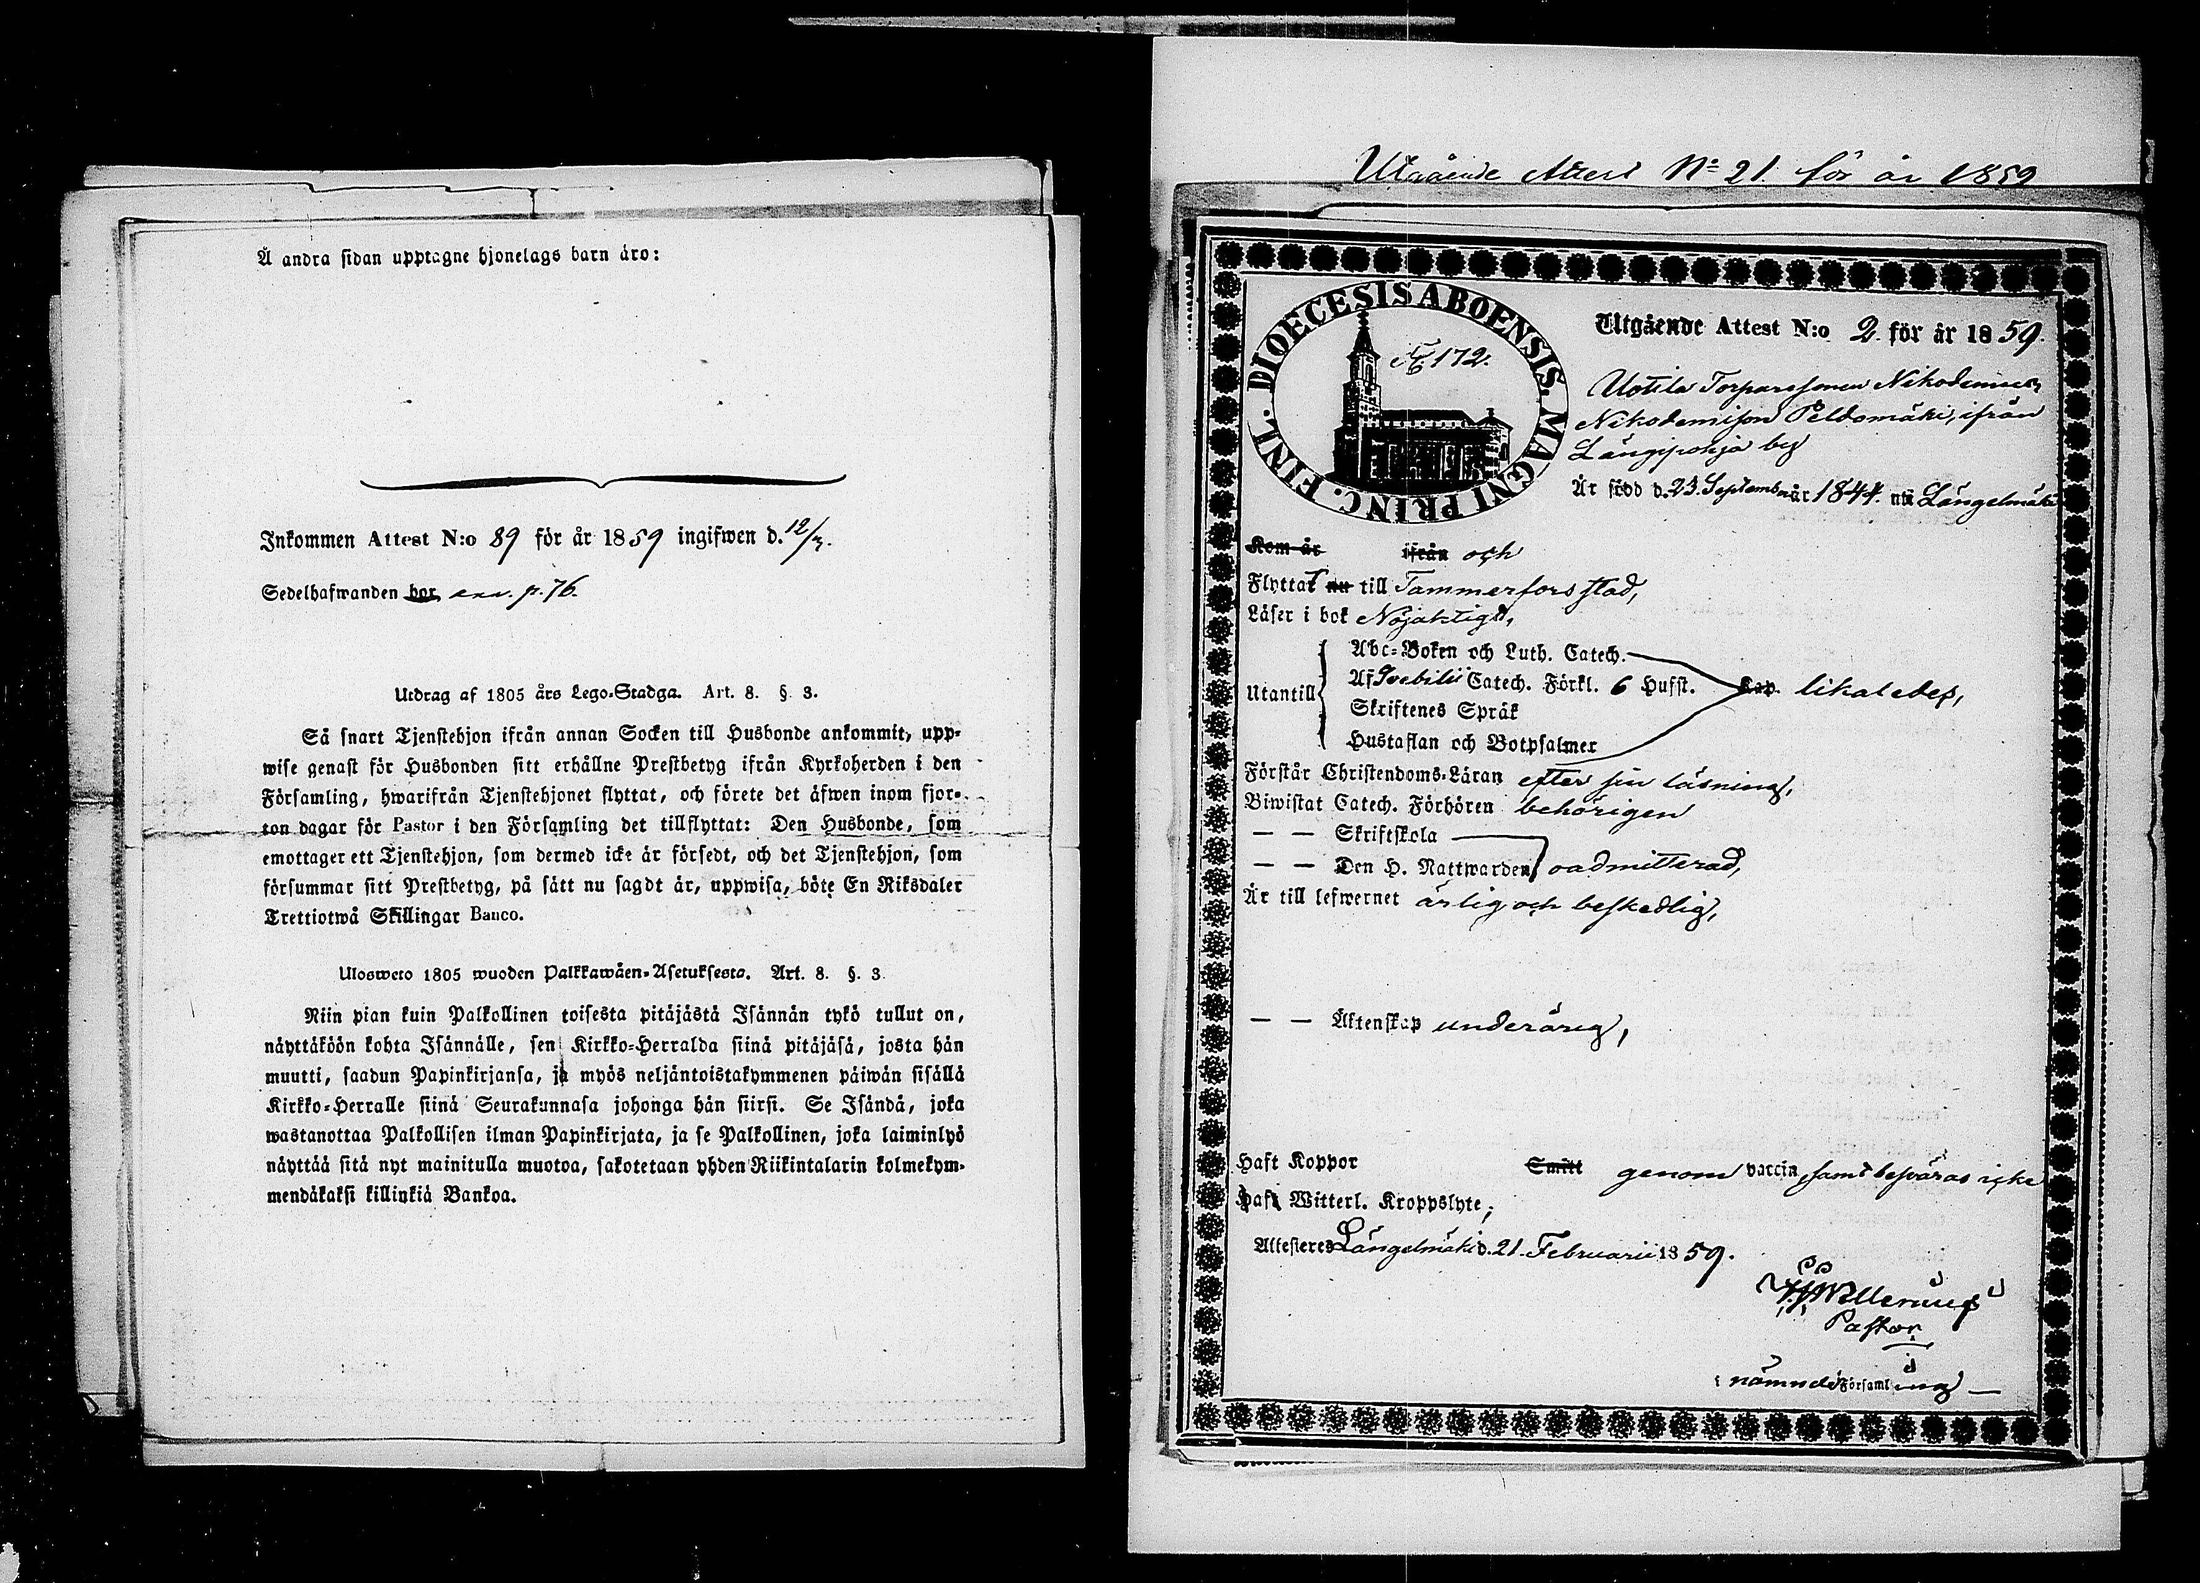 Å andra sidan upptagne hjonelags barn äro:
Inkommen Attest N:o 89 för år 1859 ingifwen d. 12/3.
Sedelhafwanden bor ann. p. 76.
Utdrag af 1805 års Lego-Stadga. Art. 8. §. 3.
Så snart Tjenstehjon ifrån annan Socken till Husbonde ankommit, upp-
wise genast för Husbonden sitt erhållne Prestbetyg ifrån Kyrkoherden i den
Församling, hwarifrån Tjenstehjonet flyttat, och förete det äfwen inom fjor-
ton dagar för Pastor i den Församling det tillflyttat: Den Husbonde, som
emottager ett Tjenstehjon, som dermed icke är försedt, och det Tjenstehjon, som
försummar sitt Prestbetyg, på sätt nu sagdt är, uppwisa, böte En Riksdaler
Trettiotwå Skillingar Banco.
Ulosweto 1805 wuoden Palkkawäen-Asetuksesta. Art. 8. §. 3.
Niin pian kuin Palkollinen toisesta pitäjästä Isännän tykö tullut on,
näyttäköön kohta Isännälle, sen Kirkko-Herralda siinä pitäjäsä, josta hän
muutti, saadun Papinkirjansa, ja myös neljäntoistakymmenen päiwän sisällä
Kirkko-Herralle siinä Seurakunnasa johonga hän siirsi. Se Isändä, joka
wastanottaa Palkollisen ilman Papinkirjata, ja se Palkollinen, joka laiminlyö
näyttää sitä nyt mainitulla muotoa, sakotetaan yhden Riikintalarin kolmekym-
mendäkaksi killinkiä Bankoa.
Utgående Attest No 21. för år 1859
DIOECESIS ABOENSIS. MAGNI PRINC. FINL.
172.
Utgående Attest N:o 2. för år 1859.
Uotila Torparesonen Nikodemus
Nikodemisson Peldomäki, ifrån
Längipohja by
Är född d. 23. Septemb. år 1844. uti Längelmäki
Kom år ifrån och
Flyttat nu till Tammerfors stad,
Läser i bok Nöjaktigt,
Utantill
Abc-Boken och Luth. Catech.
Af Svebilii Catech. Förkl. 6 Hufst. Kap. likaledes,
Skriftenes Språk
Hustaflan och Botpsalmer
Förstår Christendoms-Läran efter sin läsning,
Biwistat Catech. Förhören behörigen
— — Skriftskola
— — Den H. Nattwarden oadmitterad,
Är till lefwernet ärlig och beskedlig,
— — Äktenskap underårig,
Haft Koppor Smitt genom vaccin, samt besväras icke
Haft Witterl. Kroppslyte;
Attesteres Längelmäki d. 21. Februarii 1859.
Pastor
i nämnde Församling —